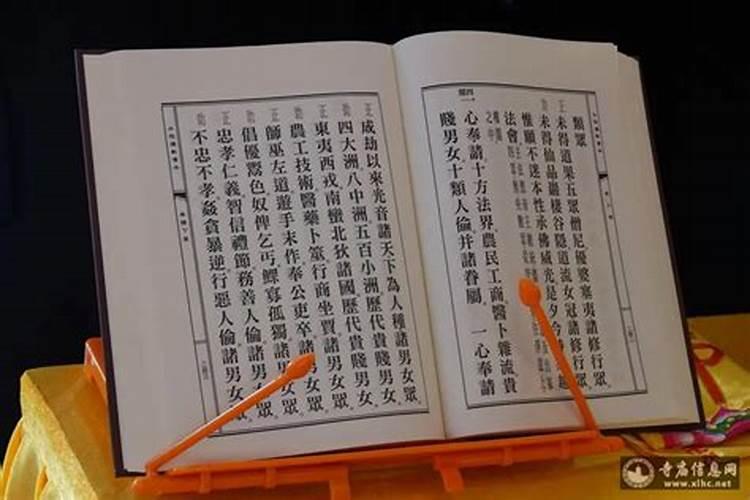 類眾
未得道果五眾僧尼優婆塞夷諸修行眾
未得仙品巖棲谷隱道流女冠諸修行眾
惟願不迷本性承佛威光是夕今
法會
一心奉請十方法界農民工商醫卜雜流貴
賤男女十類人倫并諸眷屬 一心奉請
成劫以來光音諸天下為人種諸男女眾
四大洲八中洲五百小洲歷代貴賤男女眾
東夷西戎南蠻北狄諸國歷代貴賤男女眾
農工技術醫藥卜筮行商坐賈諸男女眾
師巫左道遊手末作奉公吏卒諸男女眾
倡優鬻色奴婢乞丐鰥寡孤獨諸男女眾
忠孝仁義智信禮節務善人倫諸男女眾
不忠不孝姦貪暴逆行惡人倫諸男女眾
寺庙信息网
www.xlhc.net